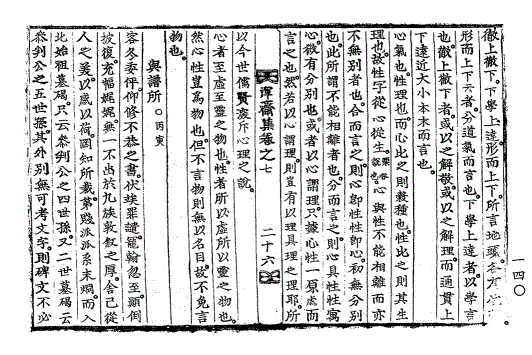 徹上徹下。下學上達。形而上下。所言地頭。各有
形而上下云者。分道氣而言也。下學上達者。以學言
也。徹上徹下者。或以之解敬。或以之解理。而通貫上
下遠近大小本末而言也。
心氣也。性理也。而心比之則穀種也。性比之則其生
理也。故性字從心從生。心與性不能相離而亦
不無別者也。合而言之則心卽性性卽心。初無分別
也。此所謂不能相離者也。分而言之則心具性。性寓
心。微有分別也。或者以心謂理。只據心性一原處而
言之也。然若以心謂理。則豈有以理具理之理耶。所
渾齋集卷之七
二十六
以今世儒賢。深斥心理之說。
心者至虛至靈之物也。性者所以虛所以靈之物也。
然心性豈爲物也。但不言物則無以名目。故不免言
物也。
與譜所 丙寅
客冬委伻。仰修不恭之書。伏竢罪譴。寵翰忽至。顚倒
披復。充幅娓娓。無一不出於九族敦敍之厚。舍己從
人之美。以感以荷。罔知所裁。第賤派派系末端而入
北始祖墓碣。只云叅判公之四世孫。又二世墓碣云
叅判公之五世孫。其外別無可考文字。則碑文不必
一四〇